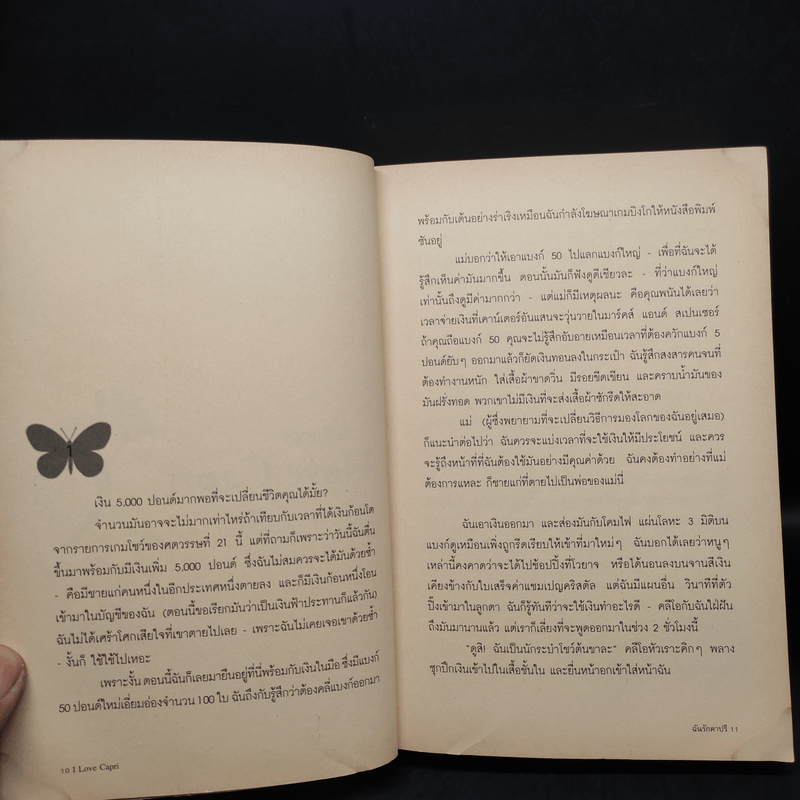 1
เงิน 5,000 ปอนด์มากพอที่จะเปลี่ยนชีวิตคุณได้มั้ย?
จำนวนมันอาจจะไม่มากเท่าไหร่ถ้าเทียบกับเวลาที่ได้เงินก้อนโต
จากรายการเกมโชว์ของศตวรรษที่ 21 นี้ แต่ที่ถามก็เพราะว่าวันนี้ฉันตื่น
ขึ้นมาพร้อมกับมีเงินเพิ่ม 5,000 ปอนด์ ซึ่งฉันไม่สมควรจะได้มันด้วยซ้ำ
- คือมีชายแก่คนหนึ่งในอีกประเทศหนึ่งตายลง และก็มีเงินก้อนหนึ่งโอน
เข้ามาในบัญชีของฉัน (ตอนนี้ขอเรียกมันว่าเป็นเงินฟ้าประทานก็แล้วกัน)
ฉันไม่ได้เศร้าโศกเสียใจที่เขาตายไปเลย - เพราะฉันไม่เคยเจอเขาด้วยซ้ำ
- งั้นก็ ใช้ใช้ไปเหอะ
เพราะงั้น ตอนนี้ฉันก็เลยมายืนอยู่ที่นี่พร้อมกับเงินในมือ ซึ่งมีแบงก์
50 ปอนด์ใหม่เอี่ยมอ่องจำนวน 100 ใบ ฉันถึงกับรู้สึกว่าต้องคลี่แบงก์ออกมา
10 I Love Capri
พร้อมกับเต้นอย่างร่าเริงเหมือนฉันกำลังโฆษณาเกมบิงโกให้หนังสือพิมพ์
ซันอยู่
แม่บอกว่าให้เอาแบงก์ 50 ไปแลกแบงก์ใหญ่ - เพื่อที่ฉันจะได้
รู้สึกเห็นค่ามันมากขึ้น ตอนนั้นมันก็ฟังดูดีเชียวละ - ที่ว่าแบงก์ใหญ่
เท่านั้นถึงดูมีค่ามากกว่า - แต่แม่ก็มีเหตุผลนะ คือคุณพนันได้เลยว่า
เวลาจ่ายเงินที่เคาน์เตอร์อันแสนจะวุ่นวายในมาร์คส์ แอนด์ สเปนเซอร์
ถ้าคุณถือแบงก์ 50 คุณจะไม่รู้สึกอับอายเหมือนเวลาที่ต้องควักแบงก์ 5
ปอนด์ยับๆ ออกมาแล้วก็ยัดเงินทอนลงในกระเป๋า ฉันรู้สึกสงสารคนจนที่
ต้องทำงานหนัก ใส่เสื้อผ้าขาดวิ่น มีรอยขีดเขียน และคราบน้ำมันของ
มันฝรั่งทอด พวกเขาไม่มีเงินที่จะส่งเสื้อผ้าซักรีดให้สะอาด
แม่ (ผู้ซึ่งพยายามที่จะเปลี่ยนวิธีการมองโลกของฉันอยู่เสมอ)
ก็แนะนำต่อไปว่า ฉันควรจะแบ่งเวลาที่จะใช้เงินให้มีประโยชน์ และควร
จะรู้ถึงหน้าที่ที่ฉันต้องใช้มันอย่างมีคุณค่าด้วย ฉันคงต้องทำอย่างที่แม่
ต้องการแหละ ก็ชายแก่ที่ตายไปเป็นพ่อของแม่นี่
ฉันเอาเงินออกมา และส่องมันกับโคมไฟ แผ่นโลหะ 3 มิติบน
แบงก์ดูเหมือนเพิ่งถูกรีดเรียบให้เข้าที่มาใหม่ๆ ฉันบอกได้เลยว่าหนูๆ
เหล่านี้คงคาดว่าจะได้ไปช้อปปิ้งที่ไวยาจ หรือได้นอนลงบนจานสีเงิน
เคียงข้างกับใบเสร็จค่าแชมเปญคริสตัล แต่ฉันมีแผนอื่น วินาทีที่ตัว
ปิ๊งเข้ามาในลูกตา ฉันก็รู้ทันทีว่าจะใช้เงินทำอะไรดี - คลีโอกับฉันใฝ่ฝัน
ถึงมันมานานแล้ว แต่เราก็เลี่ยงที่จะพูดออกมาในช่วง 2 ชั่วโมงนี้
"ดูสิ! ฉันเป็นนักระบำโชว์ต้นขาละ" คลีโอหัวเราะคิกๆ พลาง
ซุกปึกเงินเข้าไปในเสื้อชั้นใน และยื่นหน้าอกเข้าใส่หน้าฉัน
ฉันรักคาปรี 11